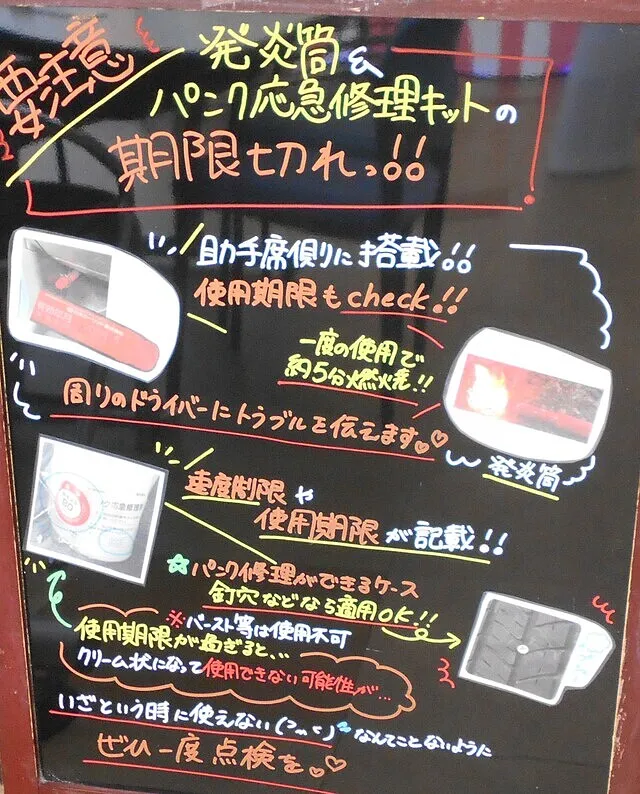 要注意
発炎筒&
パンク応急修理キットの
期限切れっ!!
助手席側に搭載!!
使用期限もcheck!!
一度の使用で
約5分燃焼!!
周りのドライバーにトラブルを伝えます♡♡
発炎筒
速度制限や
使用期限が記載!!
☆パンク修理ができるケース
釘穴などなら適用OK!!
※バースト等は使用不可
使用期限が過ぎると、、
クリーム状になって使用できない可能性が…
いざという時に使えない(>_<)なんてことないように
ぜひ一度点検を♡♡